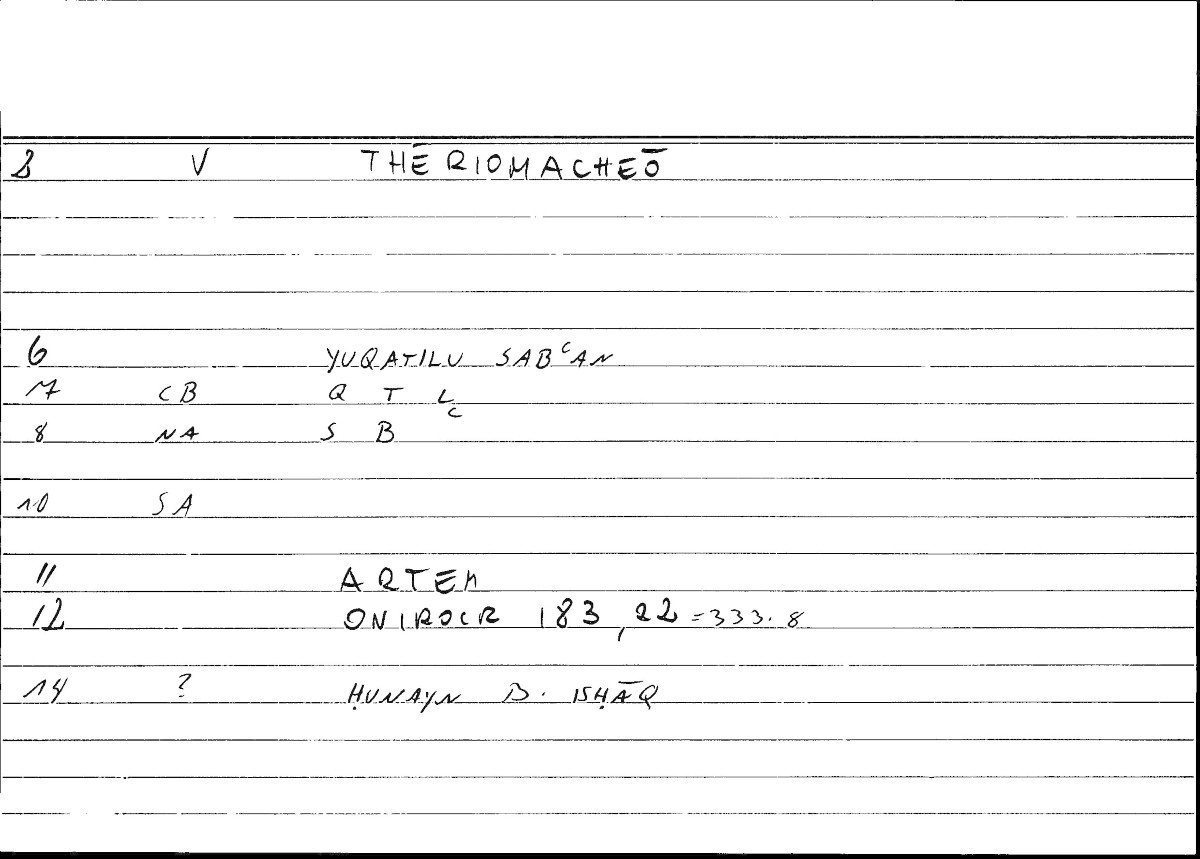 2 V THĒRIOMACHEŌ
6 YUQATILU SABᶜAN
7 CB Q T L
8 NA S B ᶜ
10 SA
11 ARTEM
12 ONIROCR 183,22 =333.8
14 ? ḤUNAYN B. ISḤĀQ